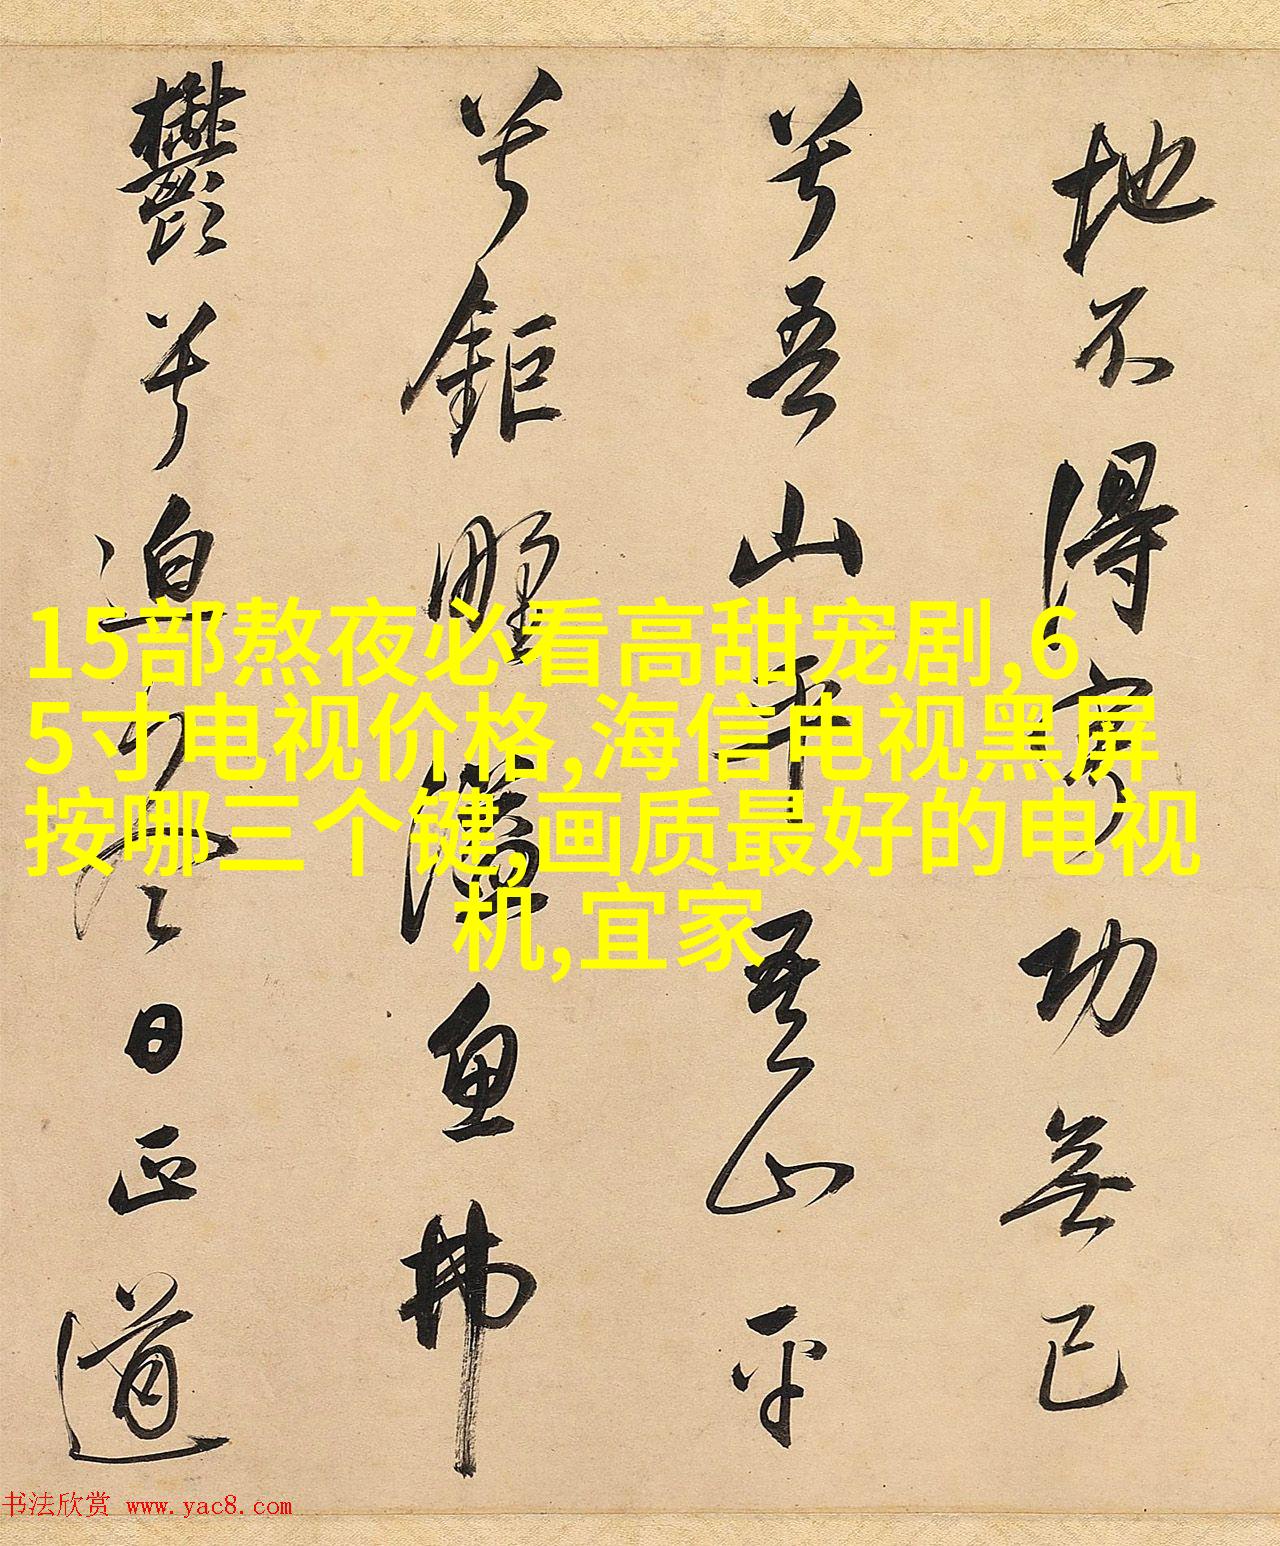 地不得寧功無已
兮吾山平吾山平
兮鉅野溢魚拂
鬱兮迫冬日正道
15部熬夜必看高甜宠剧,6
5寸电视价格,海信电视黑屏
按哪三个键,画质最好的电视
机,宜家
书法欣赏 www.yac8.com